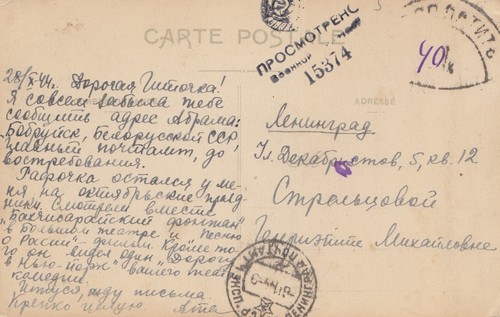 CARTE POSTALE
ADRESSE
ПРОСМОТРЕНО
Военной
15374
ДОПЛАТИТЬ
40 к
28/X-44. Дорогая Итточка!
Я совсем забыла тебе
сообщить адрес Абрама:
Бобруйск, Белорусской ССР,
главный почтамт, до
востребования.
Рафочка остался у ме-
ня, на октябрьские празд-
ники. Смотрели вместе
"Бахчисарайский фонтан"
в Большом театре и песню
о России - фильм. Кроме то-
го он видел один "Дорога
в Нью-Йорк" вашего теат.
комедии.
Итуся, жду письма.
Крепко целую.
Ленинград
Ул. Декабристов, 5, кв. 12
Стрельцовой
Генриэтте Михайловне